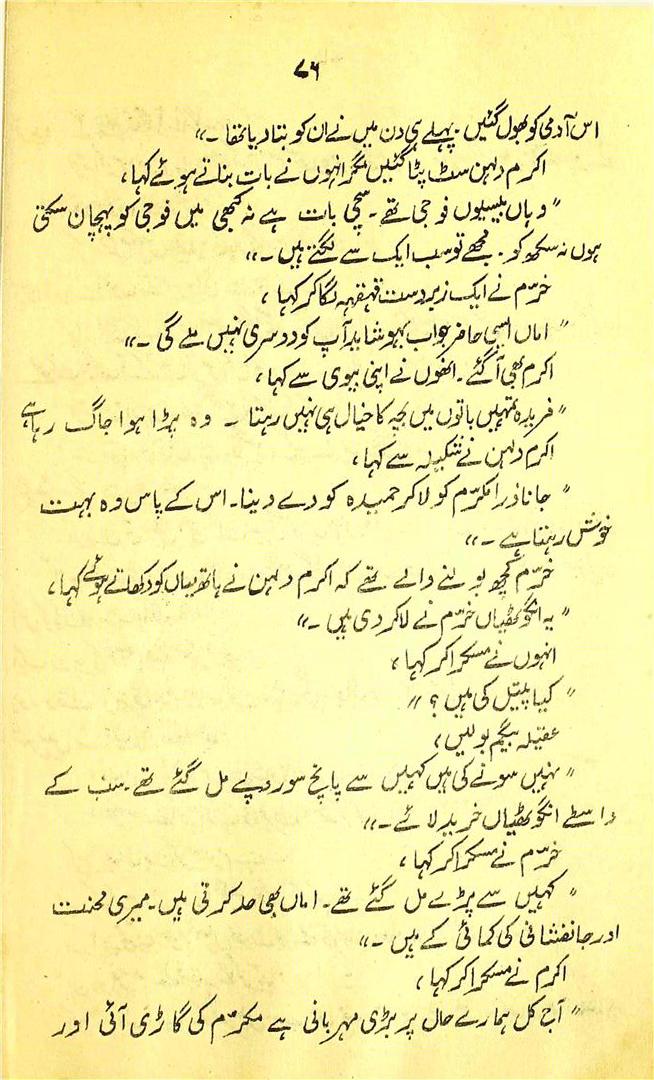 ۷۶
اس آدمی کو بھول گئیں۔ پہلے ہی دن میں نے ان کو بتا دیا تھا۔"
اکرم دلہن سٹ پٹا گئیں مگر انہوں نے بات بناتے ہوئے کہا،
"وہاں بیسیوں فوجی تھے۔ سچی بات ہے نہ کبھی میں فوجی کو پہچان سکتی
ہوں نہ سکھ کو۔ مجھے تو سب ایک سے لگتے ہیں۔"
خرّم نے ایک زبردست قہقہہ لگا کر کہا،
"اماں ایسی حاضر جواب بہو شاید آپ کو دوسری نہیں ملے گی۔"
اکرم بھی آ گئے۔ انھوں نے اپنی بیوی سے کہا،
"فریدہ تمہیں باتوں میں بچہ کا خیال ہی نہیں رہتا۔ وہ پڑا ہوا جاگ رہا ہے
اکرم دلہن نے شکیلہ سے کہا،
"جانا ذرا مکرّم کو لاکر حمیدہ کو دے دینا۔ اس کے پاس وہ بہت
خوش رہتا ہے۔"
خرّم کچھ بولنے والے تھے کہ اکرم دلہن نے ہاتھ میاں کو دکھلاتے ہوئے کہا،
"یہ انگوٹھیاں خرّم نے لا کر دی ہیں۔"
انہوں نے مسکرا کر کہا،
"کیا پیتل کی ہیں؟"
عقیلہ بیگم بولیں،
"نہیں سونے کی ہیں کہیں سے پانچ سو روپے مل گئے تھے۔ سب کے
واسطے انگوٹھیاں خرید لائے۔"
خرّم نے مسکرا کر کہا،
"کہیں سے پڑے مل گئے تھے۔ اماں بھی حد کرتی ہیں۔ میری محنت
اور جانفشانی کی کمائی کے ہیں۔"
اکرم نے مسکرا کر کہا،
"آج کل ہمارے حال پر بڑی مہربانی ہے مکرّم کی گاڑی آئی اور